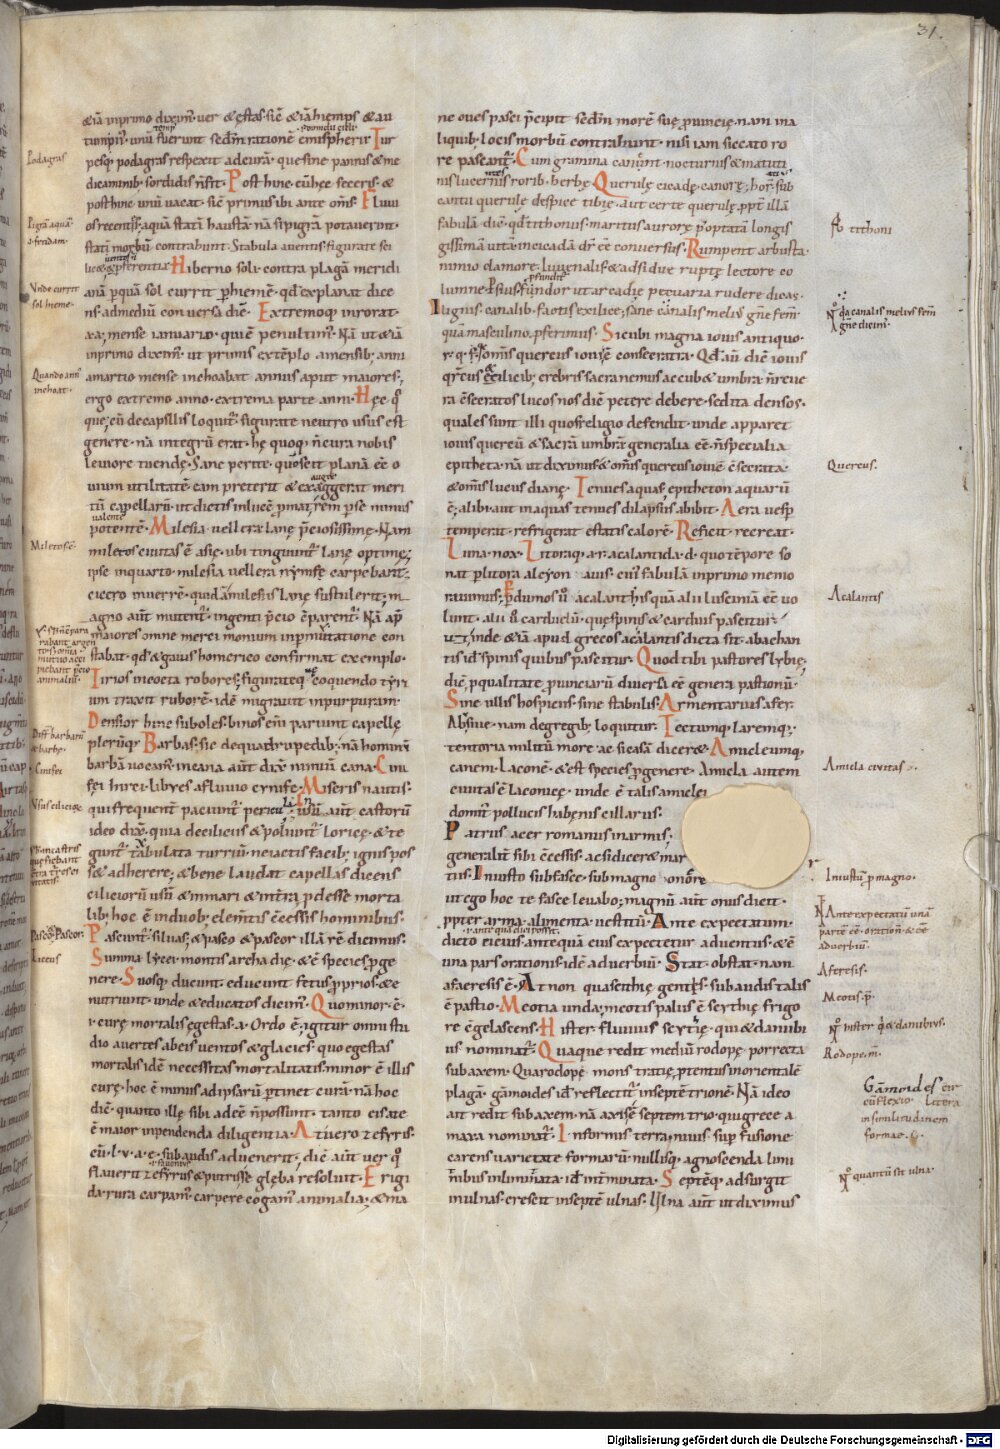 31.
&iā inprimo diximꝰ· uer & ęstas· sic̄ & iā hięmps & au
tumpnꝰ· unū fuerunt sedm̄ rationē emispherii· Tur
pesq; podagras respexit ad eurā· quę sine pannis & me
dicaminib; sordidis n̄ fit· Post hinc· cū hęc feceris· &
post hinc unū uacat· sic̄ primus ibi ante om̄s· Fluui
os recentis; aquā statī haustā· nā si pigrā potauerint·
statī morbū contrahunt· Stabula auentis· figurate
Hiberno soli· contra plagā meridi
anā p quā sol currit p hiemē· qd explanat dice
ns· ad mediū conuersa diē· Extremoq; inrorat
mense ianuario· quiē penultimꝰ· Nā ut & iā
inprimo diximꝰ· ut primus extēplo a mensib; anni
a martio mense inchoabat annus aput maiores;
ergo extremo anno· extrema parte anni· Hęc q̄
que; cū de capellis loquit̄· figurate neutro usus est
genere· nā integrū erat· hę quoq; n̄ cura nobis
leuiore tuendę· Sanc perite· quo scit planā eē o
uium utilitatē· eam preterit & exaggerat meri
tū capellarū· ut dictis in lucē pmat rem p se minus
potentē· Milesia uellera· lanę p̄ciosissimę· Nam
miletos ciuitas ē asię· ubi tinguunt̄ lanę optimę;
ipse in quarto· milesia uellera nymfę carpebant·
cicero in uerrē· quid a milesiis lanę sustulerit;
magno aūt mutent̄· ingenti p̄cio cōparent̄· Nā ap
maiores omne mercimonium in pmutatione con
stabat· qd & gaius homerico confirmat exemplo·
Tirios incocta robores; figurateq; coquendo tyri
um traxit ruborē· idē migrauit in purpuram·
Densior hinc suboles· binos enī pariunt capellę
plerūq; Barbas· sic de quadrupedib; nā hominū
barbā uocam̄· incana aūt dix̄ nimiū cana· Cini
fei hirci· libyes a fluuio cynife· Miseris nautis·
ideo dix̄· quia de ciliciis & poliunt̄ loricę· & te
gunt̄ tabulata turriū· ne iactis facib; ignis pos
s& adherere; & bene laudat capellas dicens
ciliciorū usū & in mari & in tr̄a pdesse morta
lib; hoc ē in duob; elem̄tis c̄cessis hominibus·
Pascunt̄· siluas; & pasco & pascor illā rē dicimus·
Summa lycei· montis archadię· & ē species p ge
nere· Suosq; ducunt· educunt fetus p̄prios· & e
nutriunt· unde & educatos dicim̄· Quo minor· ē·
i· curę mortalis egestas· a· Ordo ē; igitur omni stu
dio auertes ab eis uentos & glacies· quo egestas
mortalis· idē necessitas mortalitatis minor ē illis
curę· hoc ē minus ad ipsarū ptinet curā· nā hoc
dic̄· quanto illę sibi adeē n̄ possunt· tanto eis a te
ē maior inpendenda diligentia· At uero zefyris·
cū· l· u· a· e· subaudis aduenerit· dic̄ aūt uer qn̄
flauerit zefyrus & putrisse gleba resoluit· Frigi
da rura carpam̄· carpere cogam̄ animalia; & ma
ne oues pasci p̄cipit sedm̄ morē suę p̄uincię· nam in a
liquib; locis morbū contrahunt· nisi iam siccato ro
re pascant̄· Cum gramina canunt· nocturnis & matuti
nis lucernis rorib; herbę· Querulę cicadę· canorę; hor̄ sub
cantu querulę despice tibię· aut certe querulę· ppt̄ illā
fabulā· dic̄· qd tithonus· maritus aurorę p̄ optatā longis
gissimā uitā· in cicadā dr̄ eē conuersus· Rumpent arbusta·
nimio clamore· Iuuenalis & adsiduę ruptę lectore co
lumne· Persius findor ut arcadię pecuaria rudere dicas;
Ilignis· canalib; factis ex ilice; sane canalis melius gn̄e fem̄·
quā masculino· pferimus· Sicubi magna iouis antiquo·
r· q· s· omis quercus ioui ē consecrata· Qd aū dic̄ iouis
qr̄cus & ilicib; crebris sacra nemus accub& umbra· n̄ reue
ra c̄secratos lucos nos dic̄ petere debere· sed ita densos·
quales sunt illi quos religio defendit· unde apparet
iouis quercū & sacrā umbrā generalia eē· n̄ specialia
epitheta· nā ut diximus & om̄is quercus ioui ē c̄secrata·
& om̄is lucus dianę· Tenues aquas; epitheton aquarū
ē; alibi aut in aquas tenues dilapsus abibit· Aera uesp
temperat· refrigerat ęstatis calorē· Reficit· recreat·
Luna· nox· Litoraq; a· r· acalantida· d· quo tēpore so
nat p litora alcyon· auis· cuiꝰ fabulā inprimo memo
rauimus; p dumos ū· acalanthis quā alii lusciniā eē uo
lunt· alii ū carduelū· quę spinis & carduis pascitur·
unde & iā apud grecos acalantis dicta sit· ab achan
tis id spinis quibus pascitur· Quod tibi pastores lybię;
dic̄· p qualitate p̄uinciarū diuersa eē genera pastionū·
Sine ullis hospiciis· sine stabulis· Armentarius afer·
Ab siue· nam de gregib; loquitur· Tectumq; laremq;·
tentoria militū more· ac si casā dicer&· Amicleumq;
canem· Laconē· & est species p genere· Amicla autem
ciuitas ē laconicę· unde ē talis amiclei
domit̄ pollucis habenis cillarus·
Patriis acer romanus in armis;
generalit̄ sibi c̄cessis· ac si dicer& mar
tiis· Iniusto sub fasce· sub magno onore
ut ego hoc te fasce leuabo; magnū aūt onus dicit·
ppter arma· alimenta· uestitū· Ante expectatum·
dicto citius antequā eius expectetur aduentus· & ē
una pars orationis· idē aduerbiū· Stat· obstat· nam
afaeresis ē· At non qua scithię gentes· subaudis talis
ē pastio· Meotia unda; meotis palus ē scythię frigo
re cōgelascens· Hister fluuius scytię· qui & danubi
us nominat̄· Quaque redit mediū rodopę porrecta
sub axem· Qua rodopę mons tracię ptentus in orientalē
plagā· gāmoides id reflectit̄ in septētrionē· Nā ideo
ait redit sub axem· nā axis ē septemtrio· qui grece a
maxa nominat̄· Informis terra; niuis· supfusione
carens uarietate formarū· nullisq; agnoscenda limi
nibus inluminata· id int̄minata· Septēq; adsurgit
in ulnas· crescit in septē ulnas· Ulna aūt ut diximus
Podagras
Pigrā aquā
Vnde currit
sol hieme·
Quando ann
inchoat·
Miletos ē·
Diff̄ barbarū
& barbę·
Cinifei
Vsus ciliciorum
Pasco & Pascor·
Liceus
Fb tithoni
qa canalis melius fem̄
gn̄e dicim̄·
Quercus·
Acalantis
Amicla ciuitas·
Iniustū p magno·
Ante expectatū unā
partē eē· oration̄· & eē
aduerbiū·
Aferesis·
Meotis·p̄·
hister qd & danubius·
Rodope·m̄·
Gāmoides cir
cūflexio· Litera
in similitudinem
formae·
quantū sit ulna·
Digitalisierung gefördert durch die Deutsche Forschungsgemeinschaft · DFG